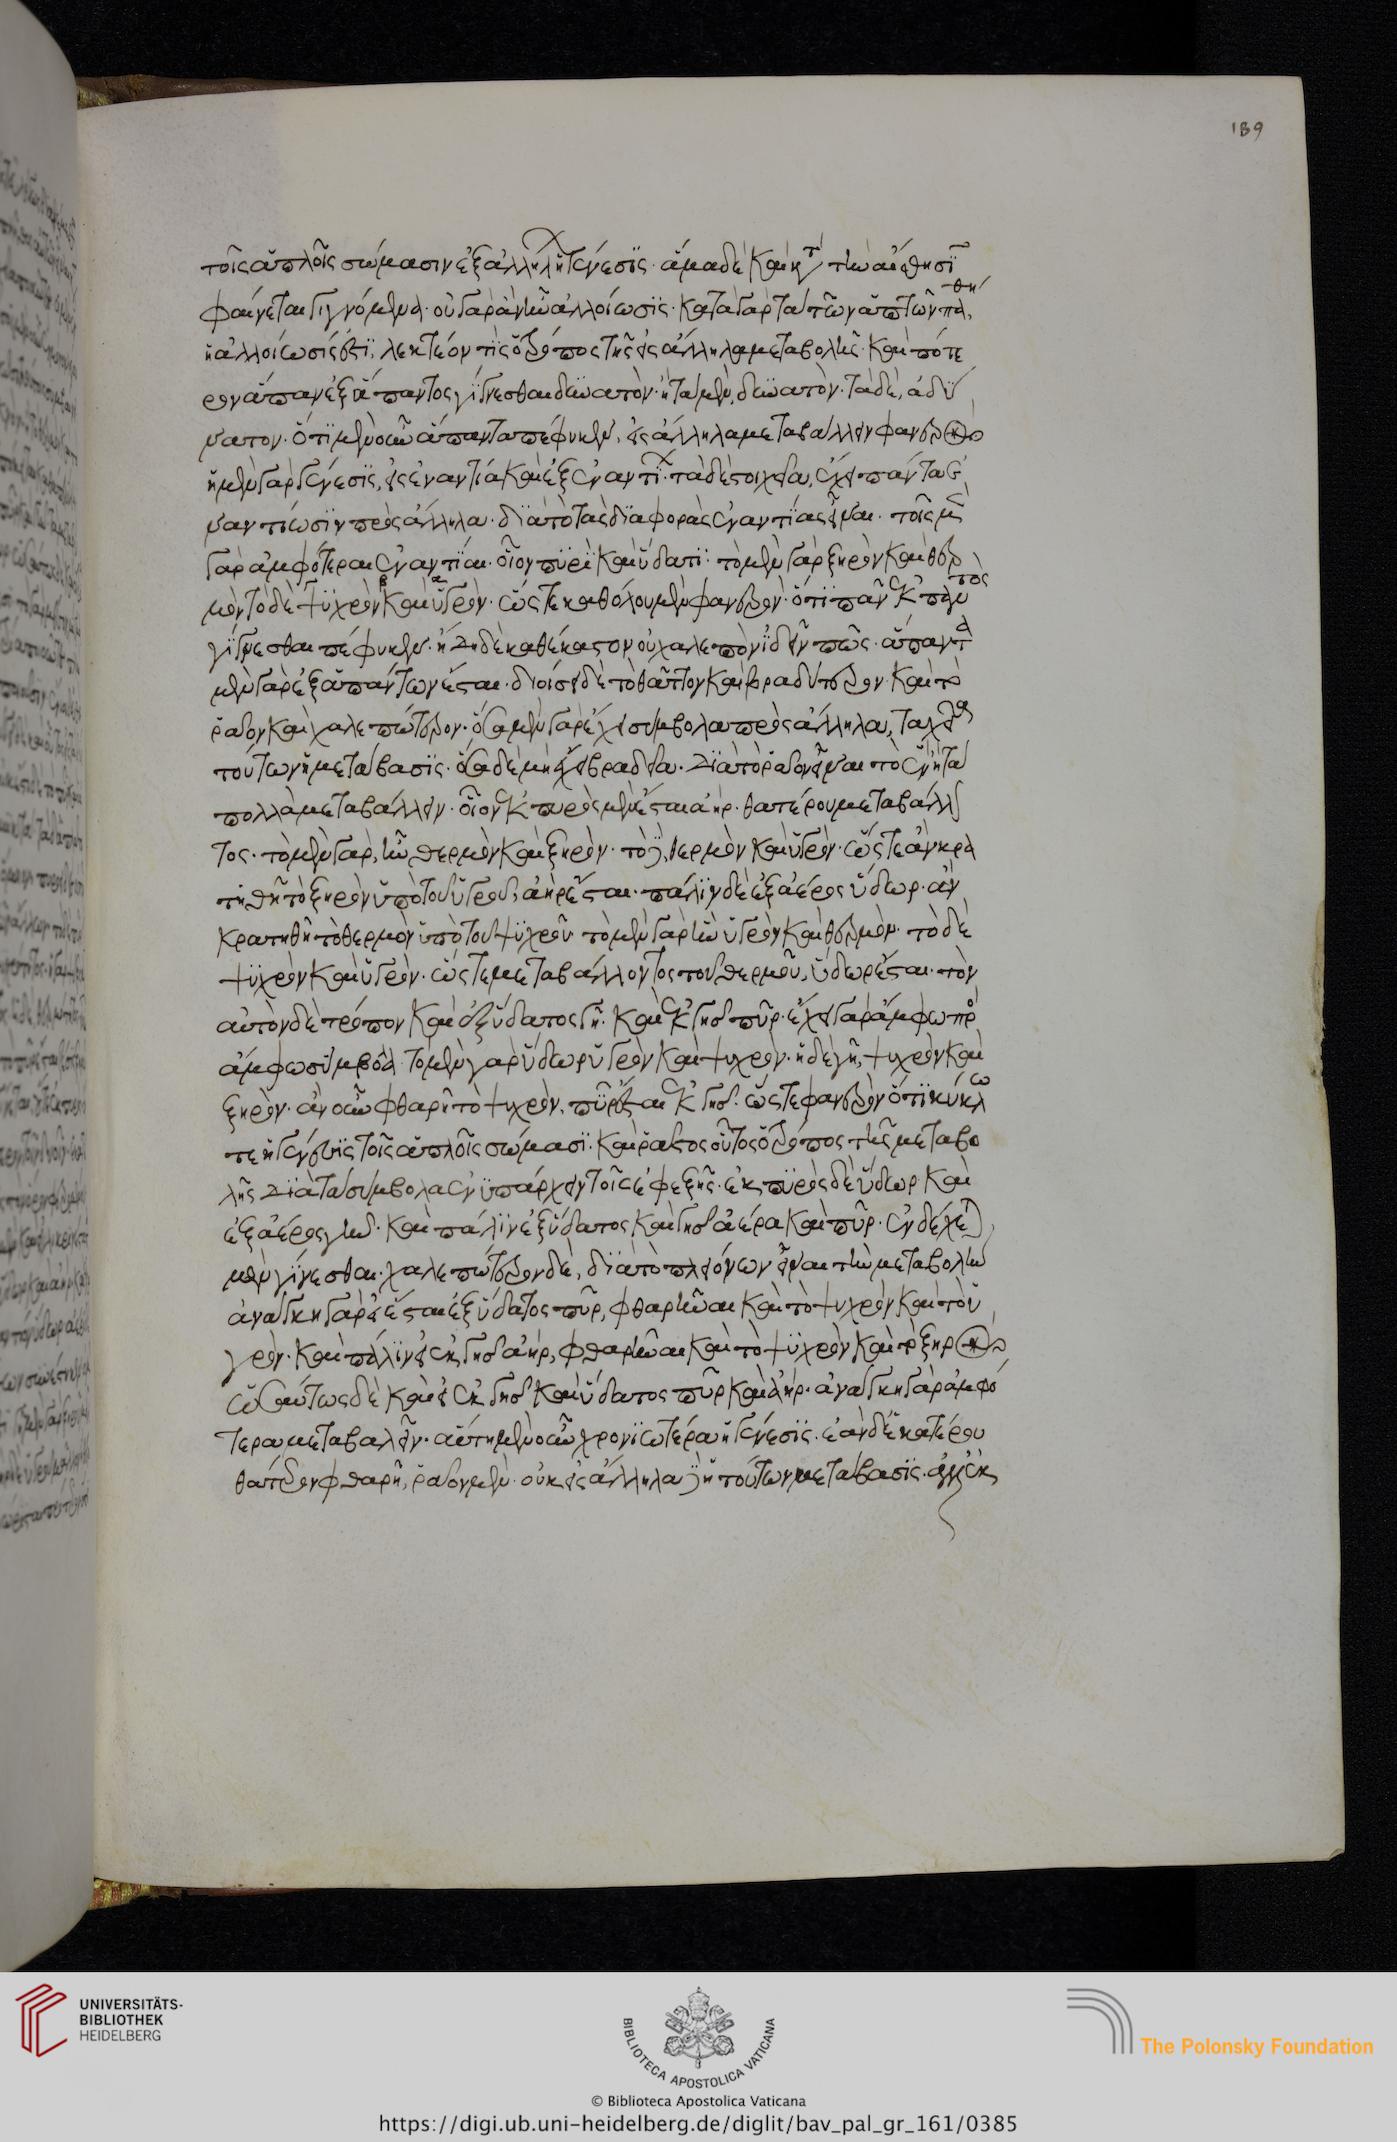 189
τοῖς ἁπλοῖς σώμασιν ἐξ ἀλλήλ ἡ γένεσις· ἅμα δὲ καὶ κτ τὴν αἴσθησϊ
φαίνεται γιγνόμενα· οὐ γὰρ ἂν ἦν ἀλλοίωσις· κατὰ γὰρ τὰ τῶν ἁπτῶν παθη
ἡ ἀλλοίωσίς ἐστϊ, λεκτέον τὶς ὁ τρόπος τῆς εἰς ἄλληλα μεταβολῆς· καὶ πότε
ρον ἅπαν ἐξ ἅπαντος γίγνεσθαι δυνατὸν· ἢ τὰ μὲν, δυνατὸν· τὰ δὲ, ἀδύ
νατον· ὅτι μὲν οὖν ἅπαντα πέφυκεν, εἰς ἄλληλα μεταβάλλειν φανερὸν
ἡ μὲν γὰρ γένεσις, εἰς ἐναντία καὶ ἐξ ἐναντι· τὰ δὲ στοιχεῖα, ἔχει πάντα ἐ
ναντίωσιν πρὸς ἄλληλα· διὰ τὸ τὰς διαφορὰς ἐναντίας εἶναι· τοῖς μὲν
γὰρ ἀμφότεραι ἐναντίαι· οἷον πυρὶ καὶ ὕδατι· τὸ μὲν γὰρ ξηρὸν καὶ θερ
μὸν τὸ δὲ ψυχρὸν καὶ ὑγρὸν· ὥστε καθόλου μὲν φανερὸν· ὅτι πᾶν ἐκ παντὸς
γίγνεσθαι πέφυκεν· ἤδη δὲ καθέκαστον οὐ χαλεπὸν ἰδεῖν πῶς· ἅπαντα
μὲν γὰρ ἐξ ἁπάντων ἔσται· διοίσει δὲ τὸ θᾶττον καὶ βραδύτερον· καὶ τὸ
ρᾶον καὶ χαλεπώτερον· ὅσα μὲν γὰρ ἔχει σύμβολα πρὸς ἄλληλα, ταχεῖα
τούτων ἡ μετάβασις· ὅσα δὲ μὴ ἔχει βραδεῖα· διὰ τὸ ρᾶον εἶναι τὸ ἓν ἢ τὰ
πολλὰ μεταβάλλειν· οἷον ἐκ πυρὸς μὲν ἔσται ἀὴρ· θατέρου μεταβάλλον
τος· τὸ μὲν γὰρ, ἦν θερμὸν καὶ ξηρὸν· τὸ δὲ, θερμὸν καὶ ὑγρὸν· ὥστε ἂν κρα
τηθῆ τὸ ξηρὸν ὑπὸ τοῦ ὑγροῦ, ἀὴρ ἔσται· πάλιν δὲ ἐξ ἀέρος ὕδωρ· ἂν
κρατηθῆ τὸ θερμὸν ὑπὸ τοῦ ψυχροῦ τὸ μὲν γὰρ ἦν ὑγρὸν καὶ θερμὸν· τὸ δὲ
ψυχρὸν καὶ ὑγρὸν· ὥστε μεταβάλλοντος τοῦ θερμοῦ, ὕδωρ ἔσται· τὸν
αὐτὸν δὲ τρόπον καὶ ἐξ ὕδατος γῆ· καὶ ἐκ γῆς πῦρ· ἔχει γὰρ ἄμφω πρὸ
ἄμφω σύμβολα· τὸ μὲν γὰρ ὕδωρ ὑγρὸν καὶ ψυχρὸν· ἡ δὲ γῆ, ψυχρὸν καὶ
ξηρὸν· ἂν οὖν φθαρῆ τὸ ψυχρὸν, πῦρ ἔσται ἐκ γῆς· ὥστε φανερὸν ὅτι κύκλω
τε ἡ γένεσις τοῖς ἁπλοῖς σώμασι· καὶ ρᾶστος οὗτος ὁ τρόπος τῆς μεταβο
λῆς διὰ τὰ σύμβολα ἐνυπάρχειν τοῖς ἐφεξῆς· ἐκ πυρὸς δὲ ὕδωρ καὶ
ἐξ ἀέρος γῆν· καὶ πάλιν ἐξ ὕδατος καὶ γῆς ἀέρα καὶ πῦρ· ἐνδέχεται
μὲν γίνεσθαι· χαλεπώτερον δὲ, διὰ τὸ πλειόνων εἶναι τὴν μεταβολὴν
ἀνάγκη γὰρ εἰ ἔσται ἐξ ὕδατος πῦρ, φθαρῆναι καὶ τὸ ψυχρὸν καὶ τὸ ὑ
γρὸν· καὶ πάλιν εἰ ἐκ γῆς ἀὴρ, φθαρῆναι καὶ τὸ ψυχρὸν καὶ τὸ ξηρὸν
ὡσαύτως δὲ καὶ εἰ ἐκ γῆς καὶ ὕδατος πῦρ καὶ ἀὴρ· ἀνάγκη γὰρ ἀμφό
τερα μεταβαλεῖν· αὕτη μὲν οὖν χρονιωτέρα ἡ γένεσις· ἐὰν δ' ἑκατέρου
θάτερον φθαρῆ, ρᾶον μὲν· οὐκ εἰς ἄλληλα δὲ ἡ τούτων μετάβασις· ἀλλ' ἐκ
UNIVERSITÄTS-
BIBLIOTHEK
HEIDELBERG
BIBLIOTECA APOSTOLICA VATICANA
The Polonsky Foundation
© Biblioteca Apostolica Vaticana
https://digi.ub.uni-heidelberg.de/diglit/bav_pal_gr_161/0385